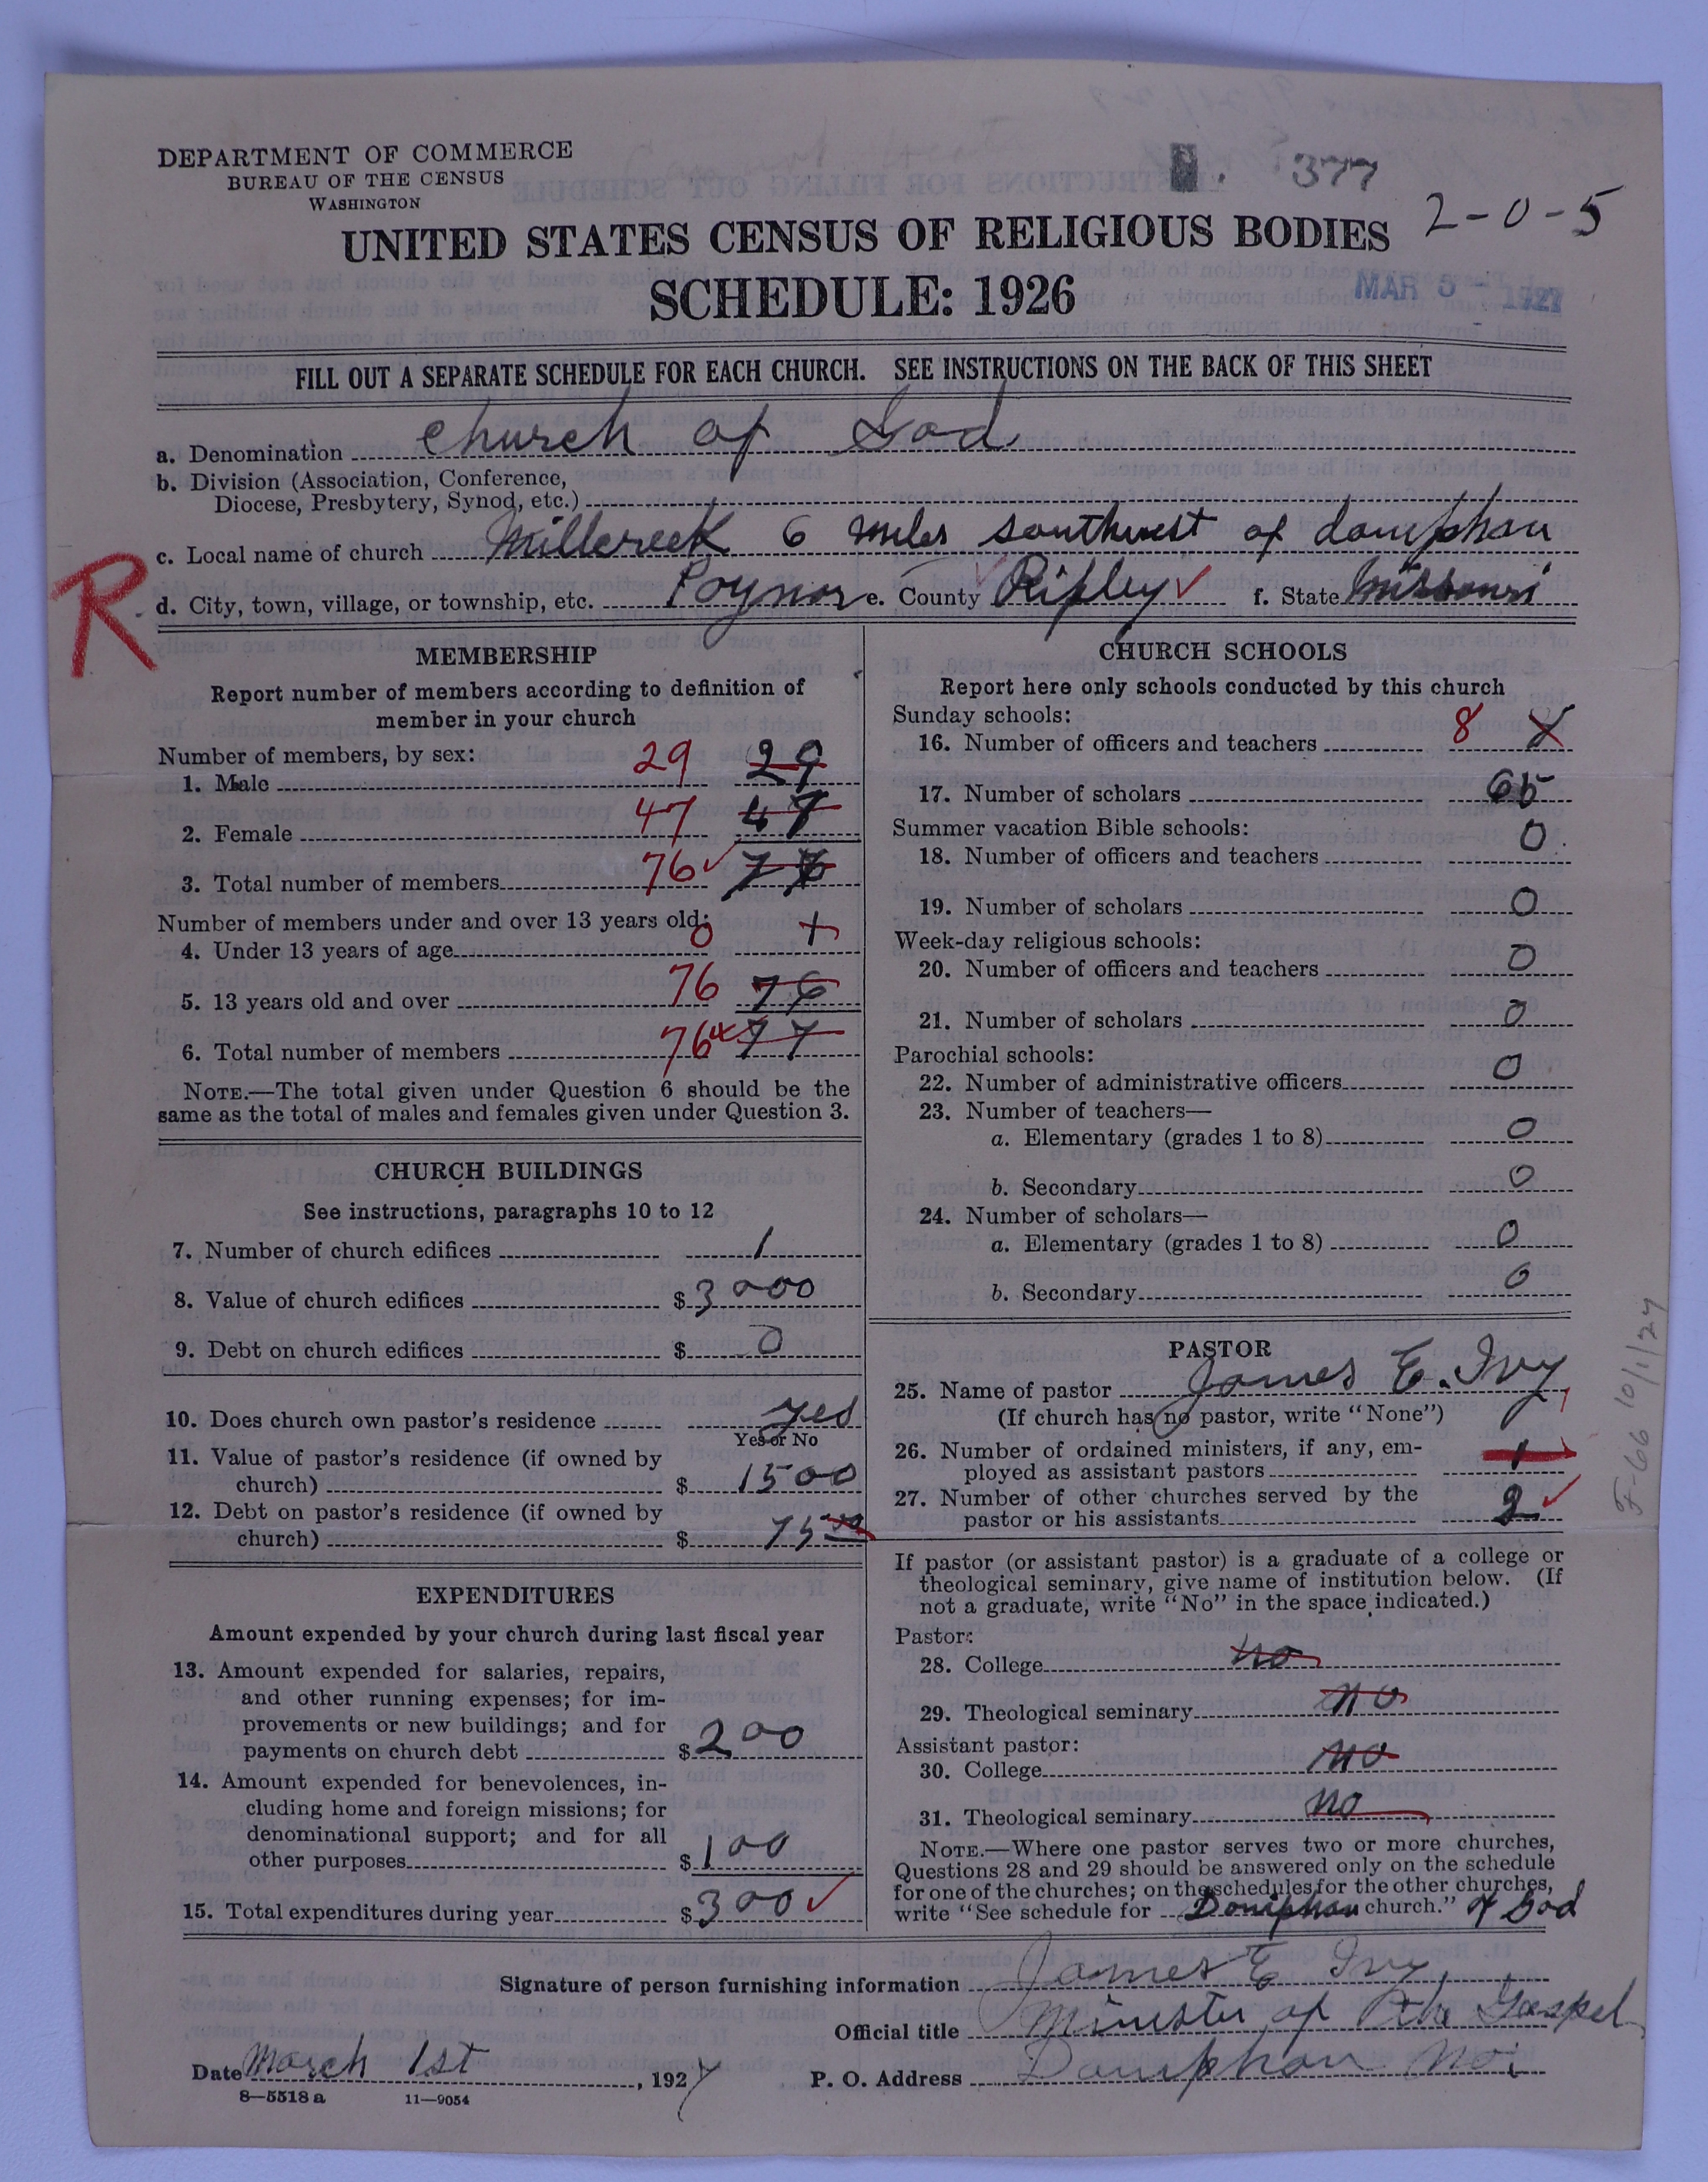 DEPARTMENT OF COMMERCE
BUREAU OF THE CENSUS
WASHINGTON
377
2-0-5
UNITED STATES CENSUS OF RELIGIOUS BODIES
SCHEDULE: 1926
MAR 5 - 1927
FILL OUT A SEPARATE SCHEDULE FOR EACH CHURCH. SEE INSTRUCTIONS ON THE BACK OF THIS SHEET
a. Denomination church of God
b. Division (Association, Conference,
Diocese, Presbytery, Synod, etc.)
c. Local name of church Millcreek 6 miles southwest of doniphan
R
d. City, town, village, or township, etc. Poynor e. County Ripley ✓ f. State Missouri
MEMBERSHIP
Report number of members according to definition of
member in your church
Number of members, by sex:
1. Male 29 29
2. Female 47 47
3. Total number of members 76 ✓ 76
Number of members under and over 13 years old:
4. Under 13 years of age 0
5. 13 years old and over 76 76
6. Total number of members 76 77
NOTE.—The total given under Question 6 should be the
same as the total of males and females given under Question 3.
CHURCH BUILDINGS
See instructions, paragraphs 10 to 12
7. Number of church edifices 1
8. Value of church edifices $3000
9. Debt on church edifices $ 0
10. Does church own pastor's residence yes
Yes or No
11. Value of pastor's residence (if owned by
church) $ 1500
12. Debt on pastor's residence (if owned by
church) $ 75
EXPENDITURES
Amount expended by your church during last fiscal year
13. Amount expended for salaries, repairs,
and other running expenses; for im-
provements or new buildings; and for
payments on church debt $200
14. Amount expended for benevolences, in-
cluding home and foreign missions; for
denominational support; and for all
other purposes $100
15. Total expenditures during year $300 ✓
CHURCH SCHOOLS
Report here only schools conducted by this church
Sunday schools:
16. Number of officers and teachers 8
17. Number of scholars 65
Summer vacation Bible schools:
18. Number of officers and teachers 0
19. Number of scholars 0
Week-day religious schools:
20. Number of officers and teachers 0
21. Number of scholars 0
Parochial schools:
22. Number of administrative officers 0
23. Number of teachers—
a. Elementary (grades 1 to 8) 0
b. Secondary 0
24. Number of scholars—
a. Elementary (grades 1 to 8) 0
b. Secondary 0
PASTOR
25. Name of pastor James E. Ivy
(If church has no pastor, write "None")
26. Number of ordained ministers, if any, em-
ployed as assistant pastors 1
27. Number of other churches served by the
pastor or his assistants 2 ✓
If pastor (or assistant pastor) is a graduate of a college or
theological seminary, give name of institution below. (If
not a graduate, write "No" in the space indicated.)
Pastor:
28. College no
29. Theological seminary no
Assistant pastor:
30. College no
31. Theological seminary no
NOTE.—Where one pastor serves two or more churches,
Questions 28 and 29 should be answered only on the schedule
for one of the churches; on the schedules for the other churches,
write "See schedule for Doniphan church." of God
F-66 10/1/27
Signature of person furnishing information James E Ivy
Official title Minister of the Gospel
Date March 1st, 1927 P. O. Address Doniphan Mo.
8—5518 a 11—9054